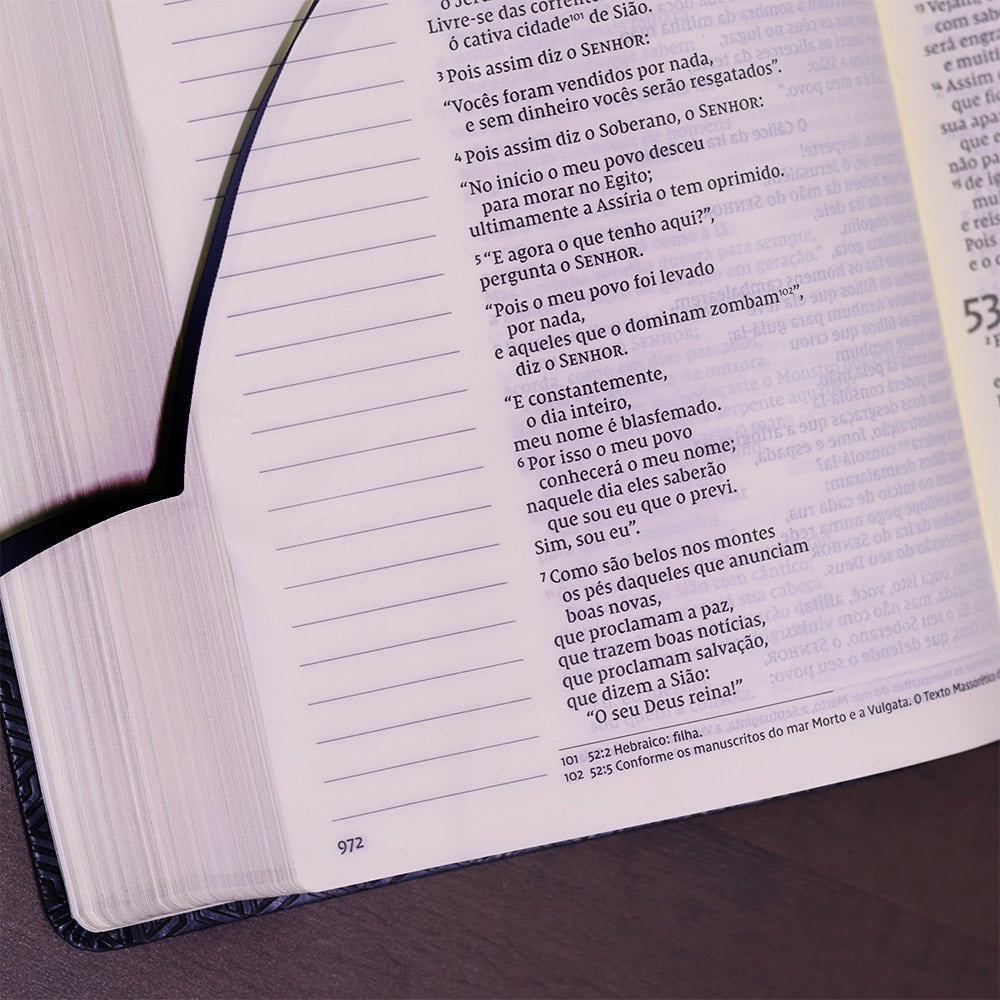 Livre-se das
ó cativa cidade¹⁰¹ de Sião.
3 Pois assim diz o SENHOR:
“Vocês foram vendidos por nada,
e sem dinheiro vocês serão resgatados”.
4 Pois assim diz o Soberano, o SENHOR:
“No início o meu povo desceu
para morar no Egito;
ultimamente a Assíria o tem oprimido.
5 “E agora o que tenho aqui?”,
pergunta o SENHOR.
“Pois o meu povo foi levado
por nada,
e aqueles que o dominam zombam¹⁰²”,
diz o SENHOR.
“E constantemente,
o dia inteiro,
meu nome é blasfemado.
6 Por isso o meu povo
conhecerá o meu nome;
naquele dia eles saberão
que sou eu que o previ.
Sim, sou eu”.
7 Como são belos nos montes
os pés daqueles que anunciam
boas novas,
que proclamam a paz,
que trazem boas notícias,
que proclamam salvação,
que dizem a Sião:
“O seu Deus reina!”
101 52:2 Hebraico: filha.
102 52:5 Conforme os manuscritos do mar Morto e a Vulgata. O Texto
972
com
será
e
Assim
que
sua
que
não
de
e
Pois
e o
53